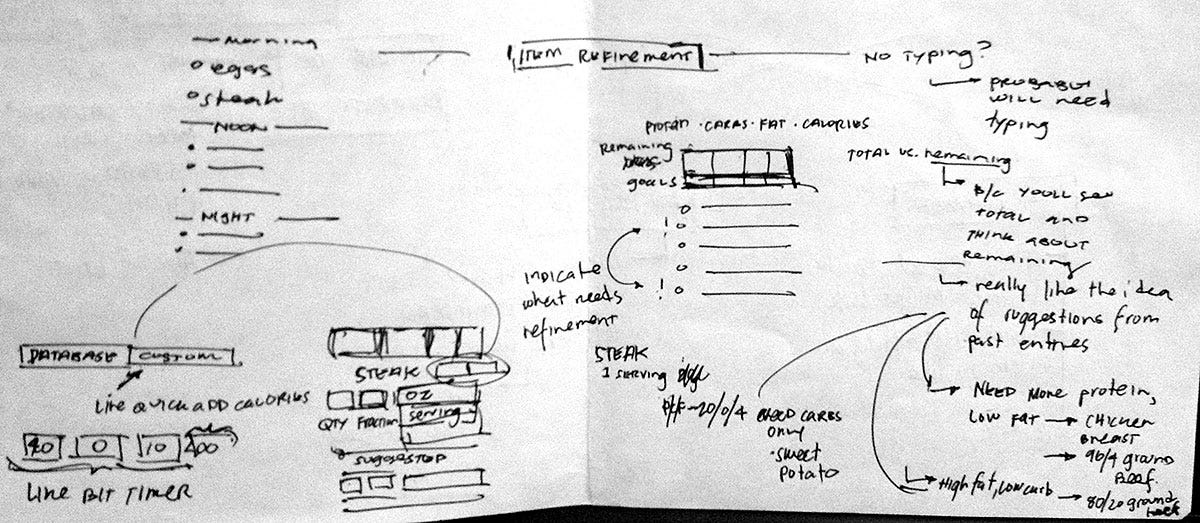 morning
eggs
steak
NOON
NIGHT
DATABASE CUSTOM
LIKE QUICK ADD CALORIES
40 0 10 400
LIKE BIT TIMER
STEAK
OZ
serving
QTY Fraction
ITEM REFINEMENT
Protein · CARBS · FAT · CALORIES
Remaining
goals
!
!
indicate
what needs
refinement
STEAK
1 SERVING
20/0/4
NEED CARBS
only
· sweet
potato
NO TYPING?
probably
will need
typing
TOTAL vs. remaining
B/C YOU'LL see
total and
THINK ABOUT
remaining
really like the idea
of suggestions from
past entries
NEED More protein,
LOW FAT → CHICKEN
BREAST
→ 96/4 ground
Beef
High fat, low carb → 80/20 ground